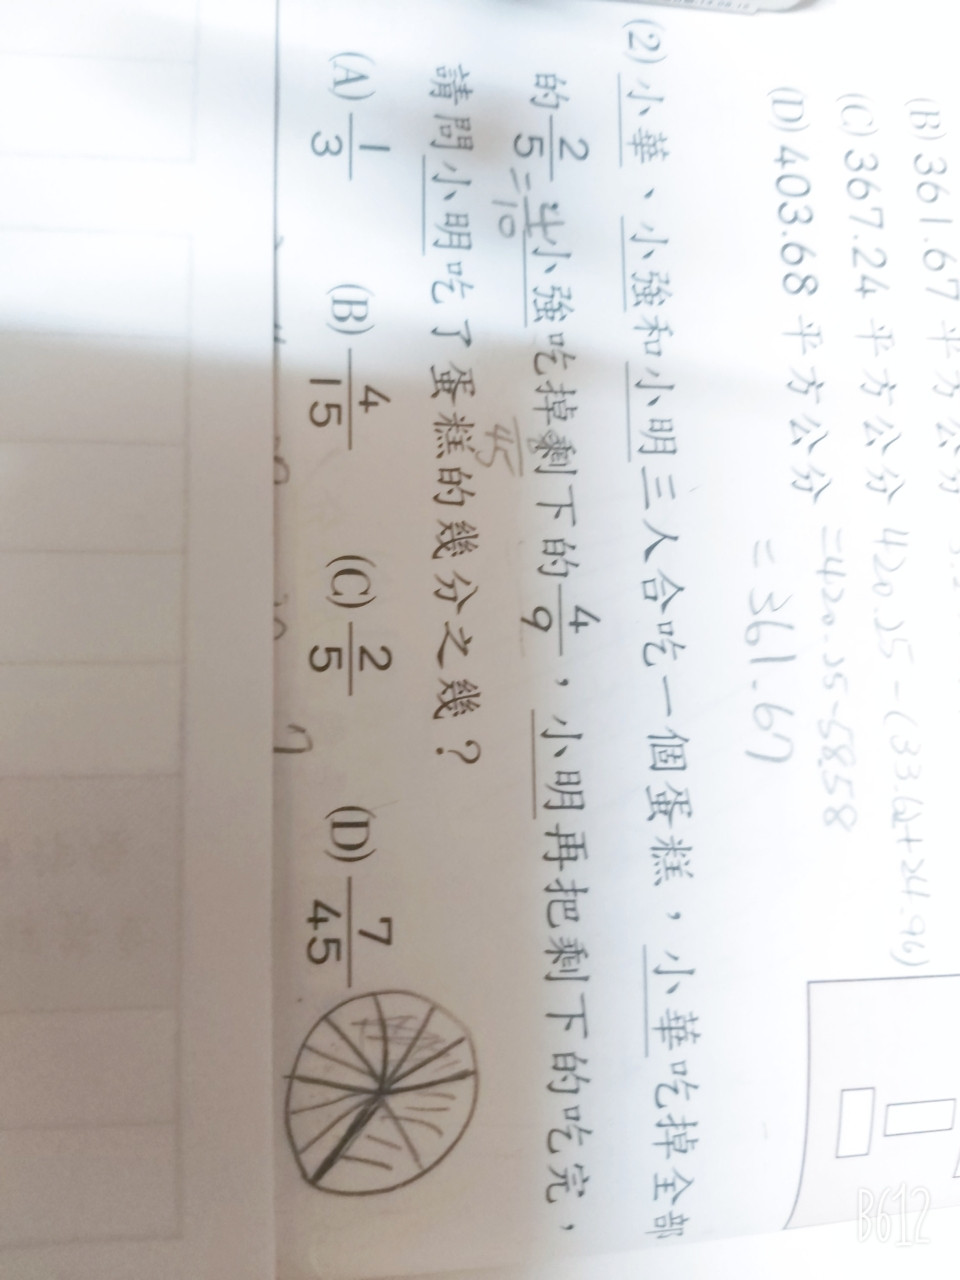 (B) 361.67 平方公分
(C) 367.24 平方公分 420.25-(33.62+24.96)
(D) 403.68 平方公分 =420.25-58.58
=361.67
(2) 小華、小強和小明三人合吃一個蛋糕,小華吃掉全部
的2/5,小強吃掉剩下的4/9,小明再把剩下的吃完,
=4/10
45
請問小明吃了蛋糕的幾分之幾?
(A) 1/3 (B) 4/15 (C) 2/5 (D) 7/45
B612